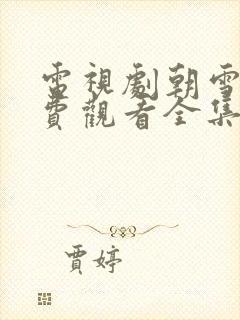 電視劇朝雪
費觀看全集
賈婷